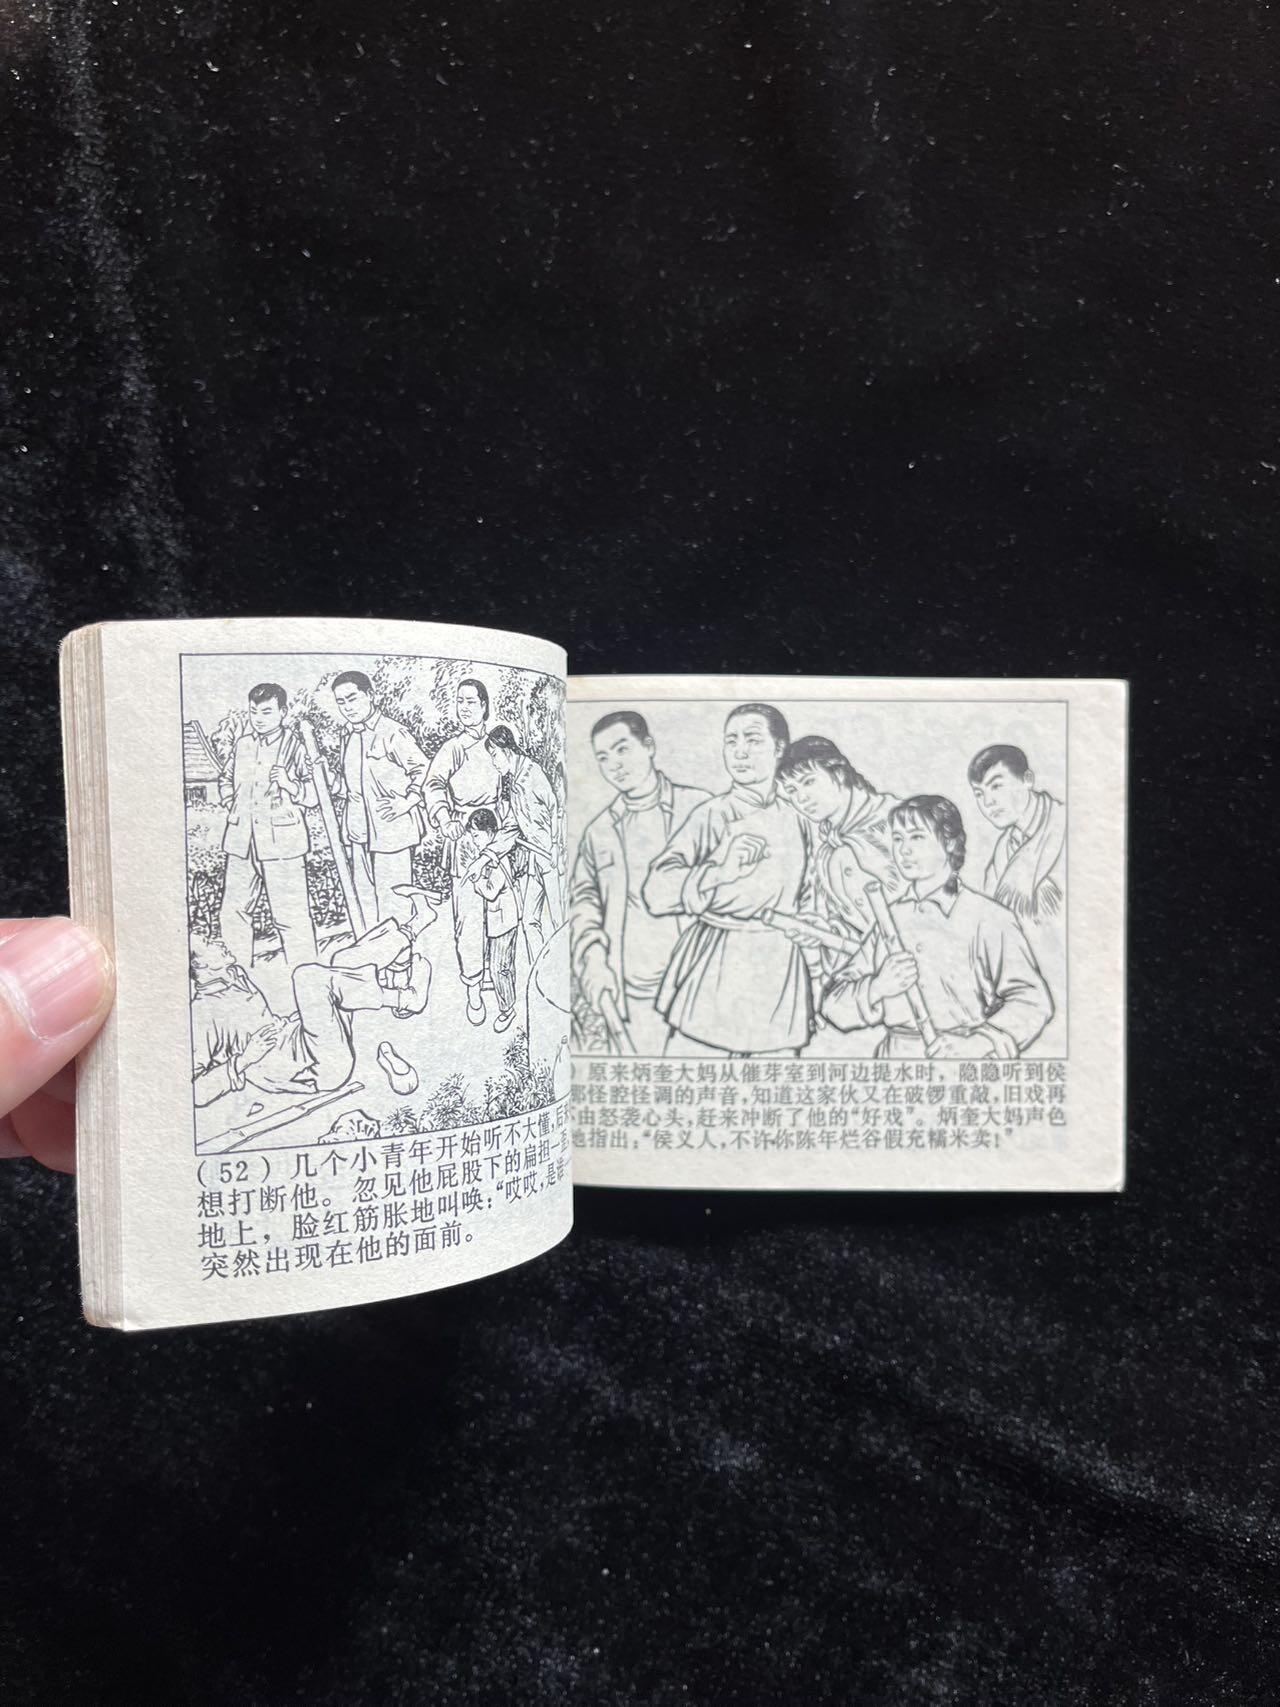 (52) 几个小青年开始听不大懂，后来
想打断他。忽见他屁股下的扁担一
地上，脸红筋胀地叫唤：“哎哎，是谁
突然出现在他的面前。
) 原来炳奎大妈从催芽室到河边提水时，隐隐听到侯
那怪腔怪调的声音，知道这家伙又在破锣重敲，旧戏再
由怒袭心头，赶来冲断了他的“好戏”。炳奎大妈声色
地指出：“侯义人，不许你陈年烂谷假充糯米卖！”